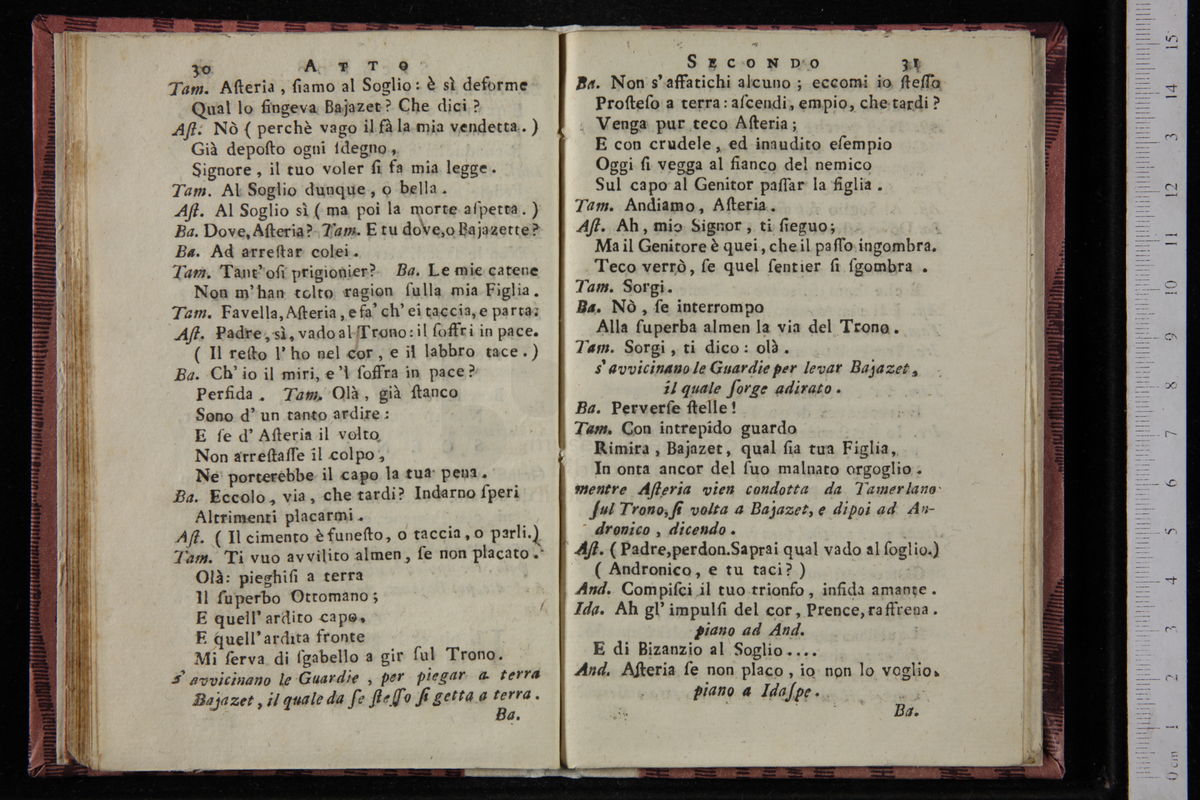 30 ATTO
Tam. Aſteria, ſiamo al Soglio: è sì deforme
Qual lo fingeva Bajazet? Che dici?
Aſt. Nò (perchè vago il fà la mia vendetta.)
Già depoſto ogni ſdegno,
Signore, il tuo voler ſi fa mia legge.
Tam. Al Soglio dunque, o bella.
Aſt. Al Soglio sì (ma poi la morte aſpetta.)
Ba. Dove, Aſteria? Tam. E tu dove, o Bajazette?
Ba. Ad arreſtar colei.
Tam. Tant' oſi prigionier? Ba. Le mie catene
Non m' han tolto ragion ſulla mia Figlia.
Tam. Favella, Aſteria, e fa' ch' ei taccia, e parta.
Aſt. Padre, sì, vado al Trono: il ſoffri in pace.
(Il reſto l' ho nel cor, e il labbro tace.)
Ba. Ch' io il miri, e 'l ſoffra in pace?
Perfida. Tam. Olà, già ſtanco
Sono d' un tanto ardire:
E ſe d' Aſteria il volto
Non arreſtaſſe il colpo,
Ne porterebbe il capo la tua pena.
Ba. Eccolo, via, che tardi? Indarno ſperi
Altrimenti placarmi.
Aſt. (Il cimento è funeſto, o taccia, o parli.)
Tam. Ti vuo avvilito almen, ſe non placato.
Olà: pieghiſi a terra
Il ſuperbo Ottomano;
E quell' ardito capo,
E quell' ardita fronte
Mi ſerva di ſgabello a gir ſul Trono.
s' avvicinano le Guardie, per piegar a terra
Bajazet, il quale da ſe ſteſſo ſi getta a terra.
Ba.
SECONDO 31
Ba. Non s' affatichi alcuno; eccomi io ſteſſo
Proſteſo a terra: aſcendi, empio, che tardi?
Venga pur teco Aſteria;
E con crudele, ed inaudito eſempio
Oggi ſi vegga al fianco del nemico
Sul capo al Genitor paſſar la figlia.
Tam. Andiamo, Aſteria.
Aſt. Ah, mio Signor, ti ſieguo;
Ma il Genitore è quei, che il paſſo ingombra.
Teco verrò, ſe quel ſentier ſi ſgombra.
Tam. Sorgi.
Ba. Nò, ſe interrompo
Alla ſuperba almen la via del Trono.
Tam. Sorgi, ti dico: olà.
s' avvicinano le Guardie per levar Bajazet,
il quale ſorge adirato.
Ba. Perverſe ſtelle!
Tam. Con intrepido guardo
Rimira, Bajazet, qual ſia tua Figlia,
In onta ancor del ſuo malnato orgoglio.
mentre Aſteria vien condotta da Tamerlano
ſul Trono, ſi volta a Bajazet, e dipoi ad An-
dronico, dicendo.
Aſt. (Padre, perdon. Saprai qual vado al ſoglio.)
(Andronico, e tu taci?)
And. Compiſci il tuo trionfo, infida amante.
Ida. Ah gl' impulſi del cor, Prence, raffrena.
piano ad And.
E di Bizanzio al Soglio....
And. Aſteria ſe non placo, io non lo voglio.
piano a Idaſpe.
Ba.
0 cm 1 2 3 4 5 6 7 8 9 10 11 12 13 14 15